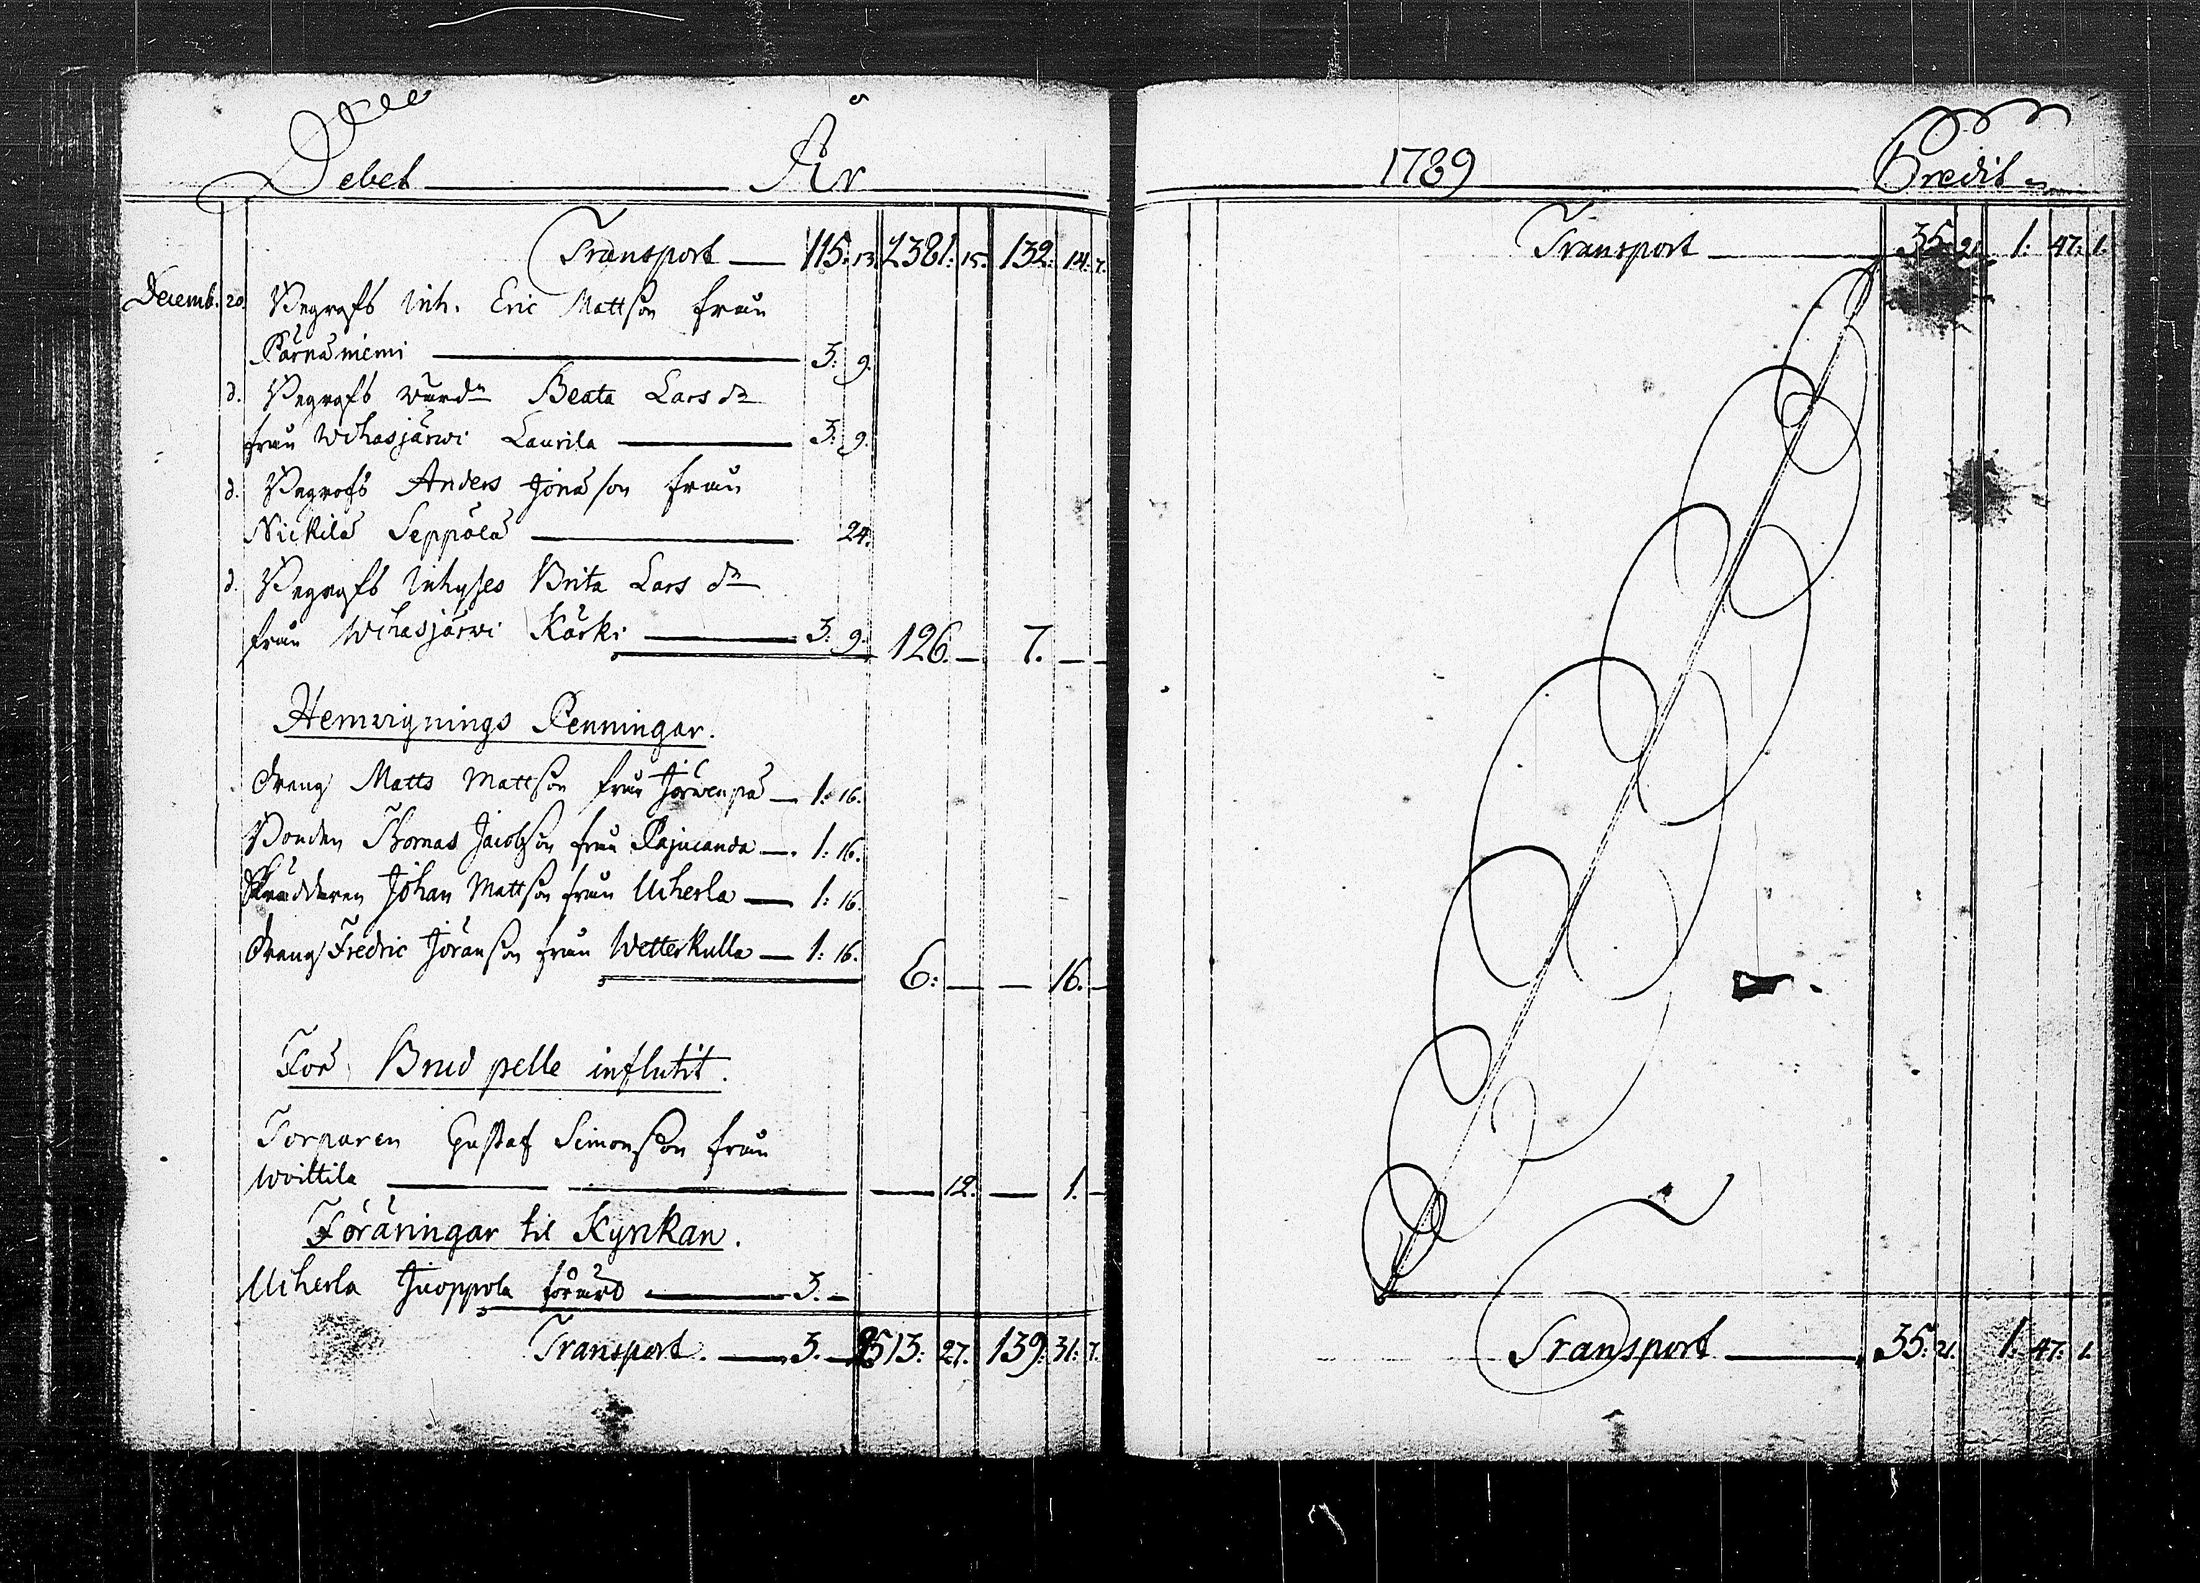 Debet År
Transport 115: 13. 2381: 15. 132: 14: 7.
Decemb. 20. Begrofs Inh. Eric Mattson från
Pärnäniemi 3: 9.
d. Begrofs Lars dr
från Wihasjärwi Laurila 3: 9.
d. Begrofs Anders Jöns son från
Nickilä Seppälä 24.
d. Begrofs Inhyses Brita Lars dr
från Wihasjärwi Kärki 3: 9. 126. — 7. — —
Hemvignings Penningar.
Dreng Matts Mattson från Järwenpä 1: 16.
Bonden Thomas Jacobson från Rajucanda 1: 16.
Skräddaren Johan Mattson från Uiherla 1: 16.
Dreng Fredric Jöranson från Wetterkulla 1: 16.
6: — — 16. —
För Brud pelle influtit.
Torparen Gustaf Simonson från
Woittila 12. — 1. —
Föräringar til Kyrkan.
Uiherla Juoppola förärd 3. —
Transport. 3. — 2513: 27. 139: 31: 7.
1789 Credit
Transport 35: 21. 1: 47: 1.
Transport 35: 21. 1: 47: 1.